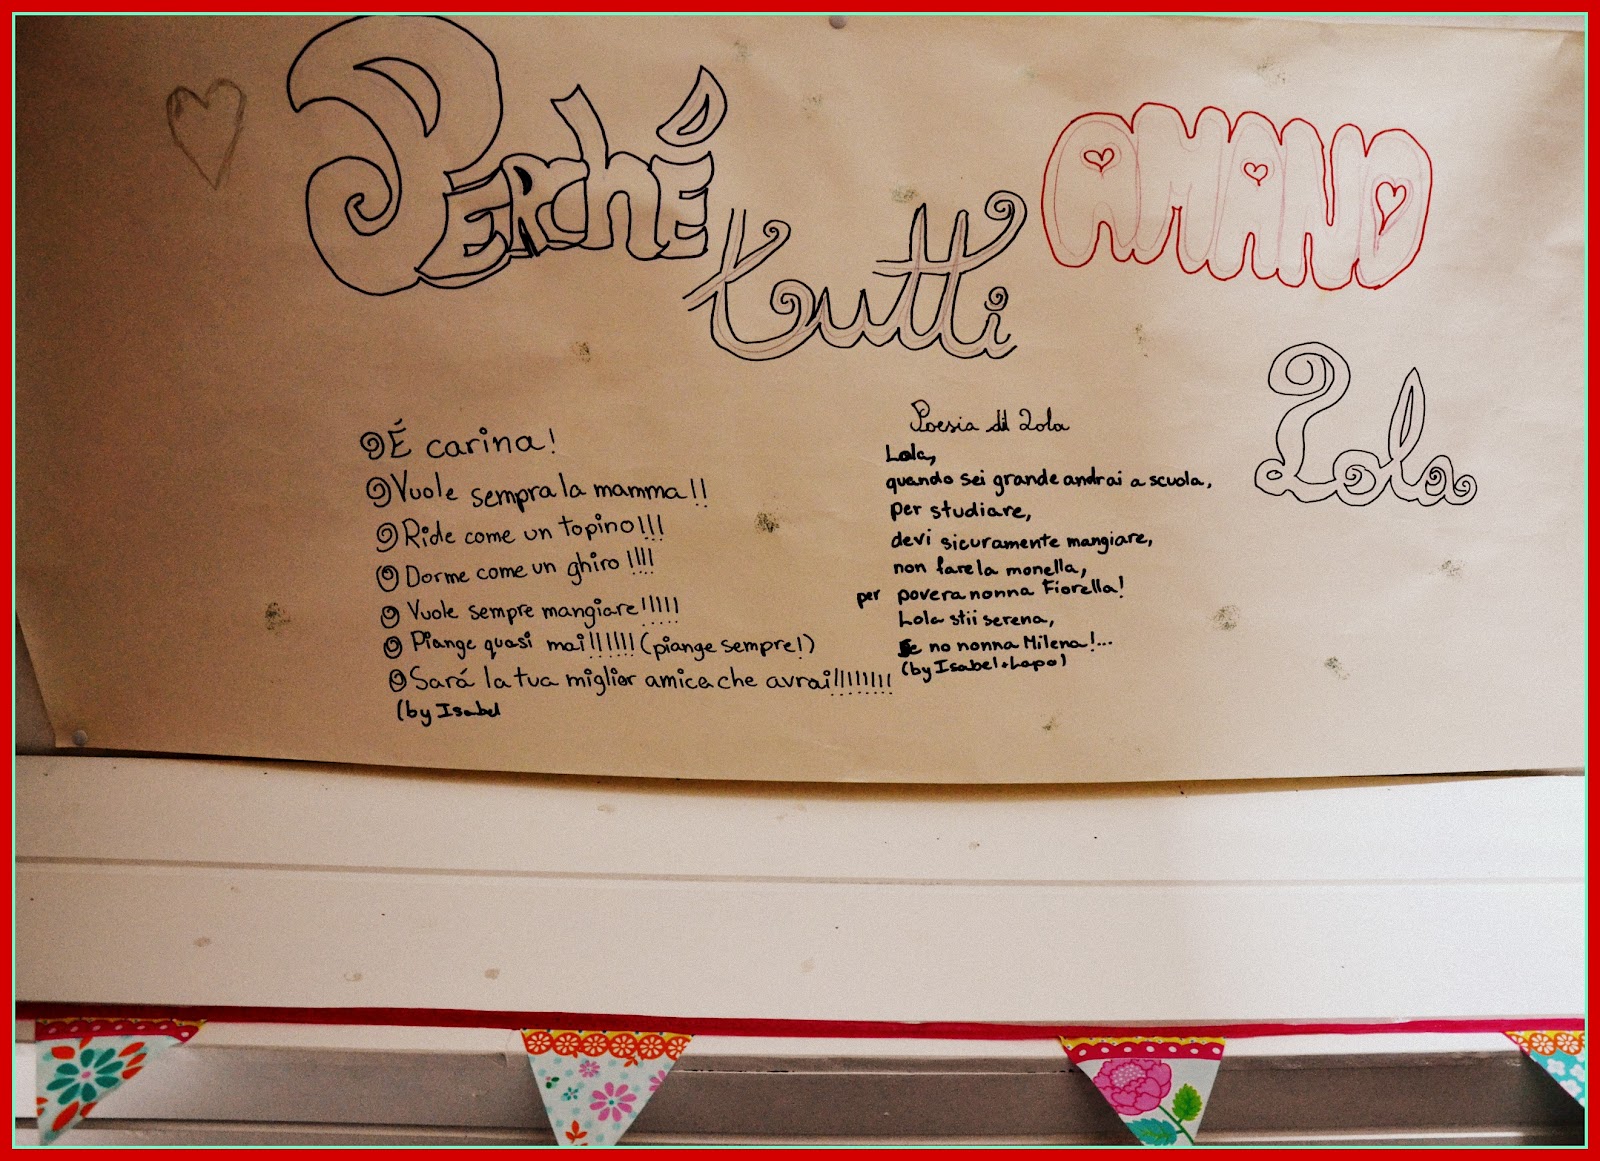 PERché tutti AMANO Lola
É carina!
Vuole sempra la mamma!!
Ride come un topino!!!
Dorme come un ghiro!!!!
Vuole sempre mangiare!!!!!
Piange quasi mai!!!!!!! (piange sempre!)
Sará la tua miglior amica che avrai!!!!!!!!!
(by Isabel
Poesia di Lola
Lola,
quando sei grande andrai a scuola,
per studiare,
devi sicuramente mangiare,
non fare la monella,
per povera nonna Fiorella!
Lola stii serena,
Se no nonna Milena!...
(by Isabel+Lapo)